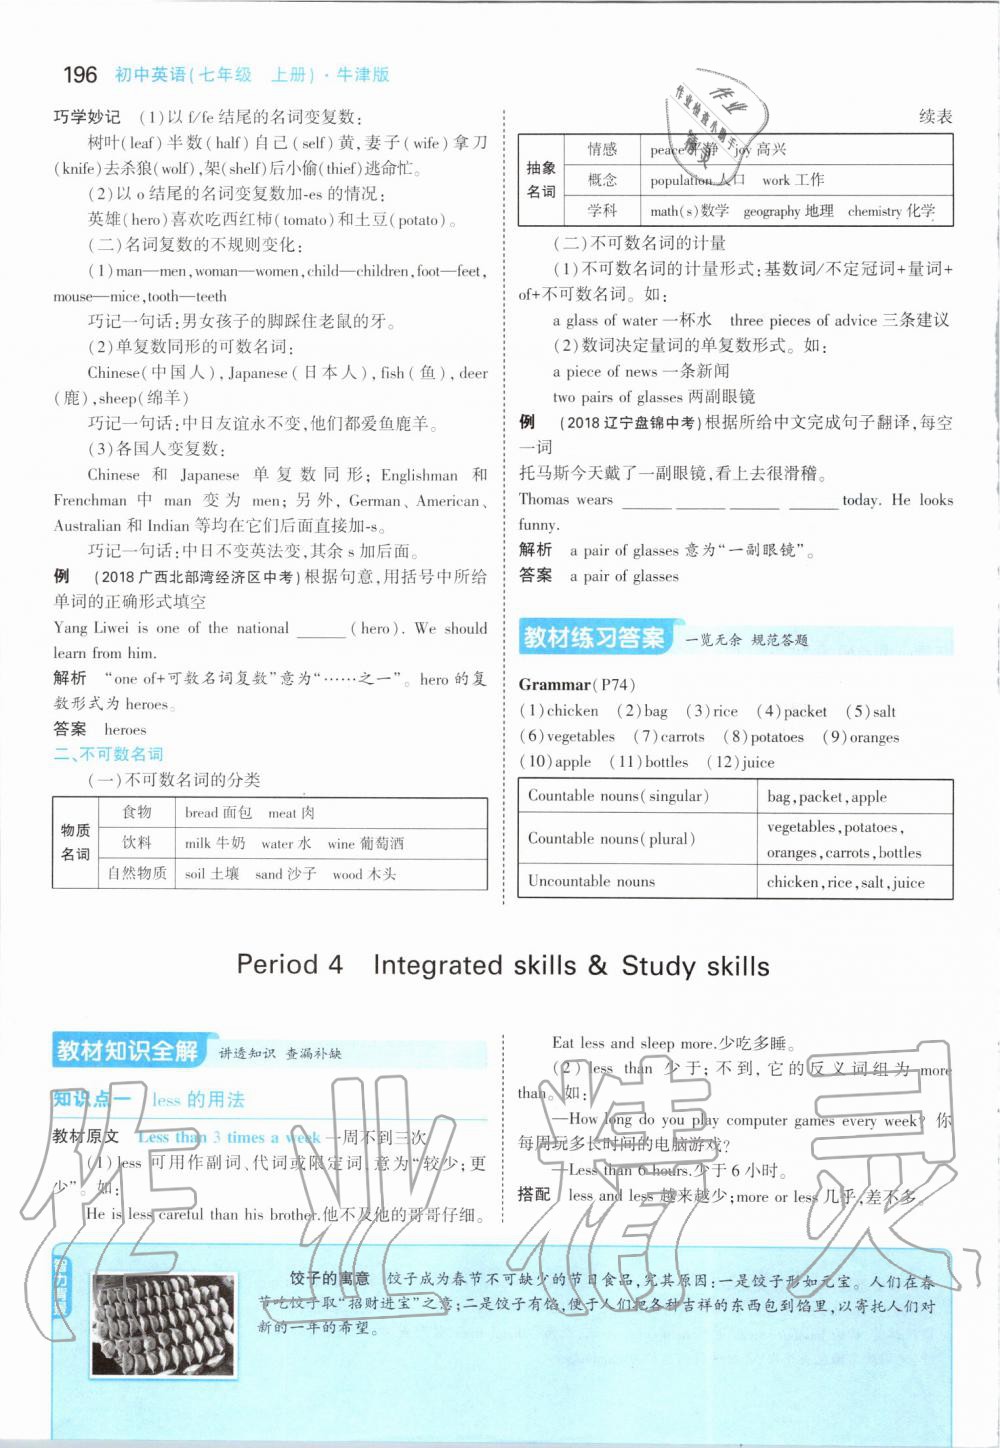 196 初中英语(七年级 上册)·牛津版
巧学妙记 (1)以 f/fe 结尾的名词变复数:
树叶(leaf)半数(half)自己(self)黄,妻子(wife)拿刀
(knife)去杀狼(wolf),架(shelf)后小偷(thief)逃命忙。
(2)以 o 结尾的名词变复数加-es 的情况:
英雄(hero)喜欢吃西红柿(tomato)和土豆(potato)。
(二)名词复数的不规则变化:
(1)man—men,woman—women,child—children,foot—feet,
mouse—mice,tooth—teeth
巧记一句话:男女孩子的脚踩住老鼠的牙。
(2)单复数同形的可数名词:
Chinese(中国人),Japanese(日本人),fish(鱼),deer
(鹿),sheep(绵羊)
巧记一句话:中日友谊永不变,他们都爱鱼鹿羊。
(3)各国人变复数:
Chinese 和 Japanese 单复数同形;Englishman 和
Frenchman 中 man 变为 men;另外,German、American、
Australian 和 Indian 等均在它们后面直接加-s。
巧记一句话:中日不变英法变,其余 s 加后面。
例 (2018 广西北部湾经济区中考)根据句意,用括号中所给
单词的正确形式填空
Yang Liwei is one of the national ______ (hero). We should
learn from him.
解析 “one of+可数名词复数”意为“……之一”。hero 的复
数形式为 heroes。
答案 heroes
二、不可数名词
(一)不可数名词的分类
物质名词 食物 bread 面包 meat 肉
饮料 milk 牛奶 water 水 wine 葡萄酒
自然物质 soil 土壤 sand 沙子 wood 木头
续表
抽象名词 情感 peace 平静 joy 高兴
概念 population 人口 work 工作
学科 math(s)数学 geography 地理 chemistry 化学
(二)不可数名词的计量
(1)不可数名词的计量形式:基数词/不定冠词+量词+
of+不可数名词。如:
a glass of water 一杯水 three pieces of advice 三条建议
(2)数词决定量词的单复数形式。如:
a piece of news 一条新闻
two pairs of glasses 两副眼镜
例 (2018 辽宁盘锦中考)根据所给中文完成句子翻译,每空
一词
托马斯今天戴了一副眼镜,看上去很滑稽。
Thomas wears ______ ______ ______ ______ today. He looks
funny.
解析 a pair of glasses 意为“一副眼镜”。
答案 a pair of glasses
教材练习答案 一览无余 规范答题
Grammar(P74)
(1)chicken (2)bag (3)rice (4)packet (5)salt
(6)vegetables (7)carrots (8)potatoes (9)oranges
(10)apple (11)bottles (12)juice
Countable nouns(singular) bag,packet,apple
Countable nouns(plural) vegetables,potatoes,
oranges,carrots,bottles
Uncountable nouns chicken,rice,salt,juice
Period 4 Integrated skills & Study skills
教材知识全解 讲透知识 查漏补缺
知识点一 less 的用法
教材原文 Less than 3 times a week 一周不到三次
(1)less 可用作副词、代词或限定词,意为“较少;更
少”。如:
He is less careful than his brother.他不及他的哥哥仔细。
Eat less and sleep more.少吃多睡。
(2)less than 少于;不到,它的反义词组为 more
than。如:
—How long do you play computer games every week? 你
每周玩多长时间的电脑游戏?
—Less than 6 hours.少于 6 小时。
搭配 less and less 越来越少;more or less 几乎,差不多。
饺子的寓意 饺子成为春节不可缺少的节日食品,究其原因:一是饺子形如元宝。人们在春
节吃饺子取“招财进宝”之意;二是饺子有馅,便于人们把各种吉祥的东西包到馅里,以寄托人们对
新的一年的希望。
作业精灵
作业
作业检查小助手
精灵